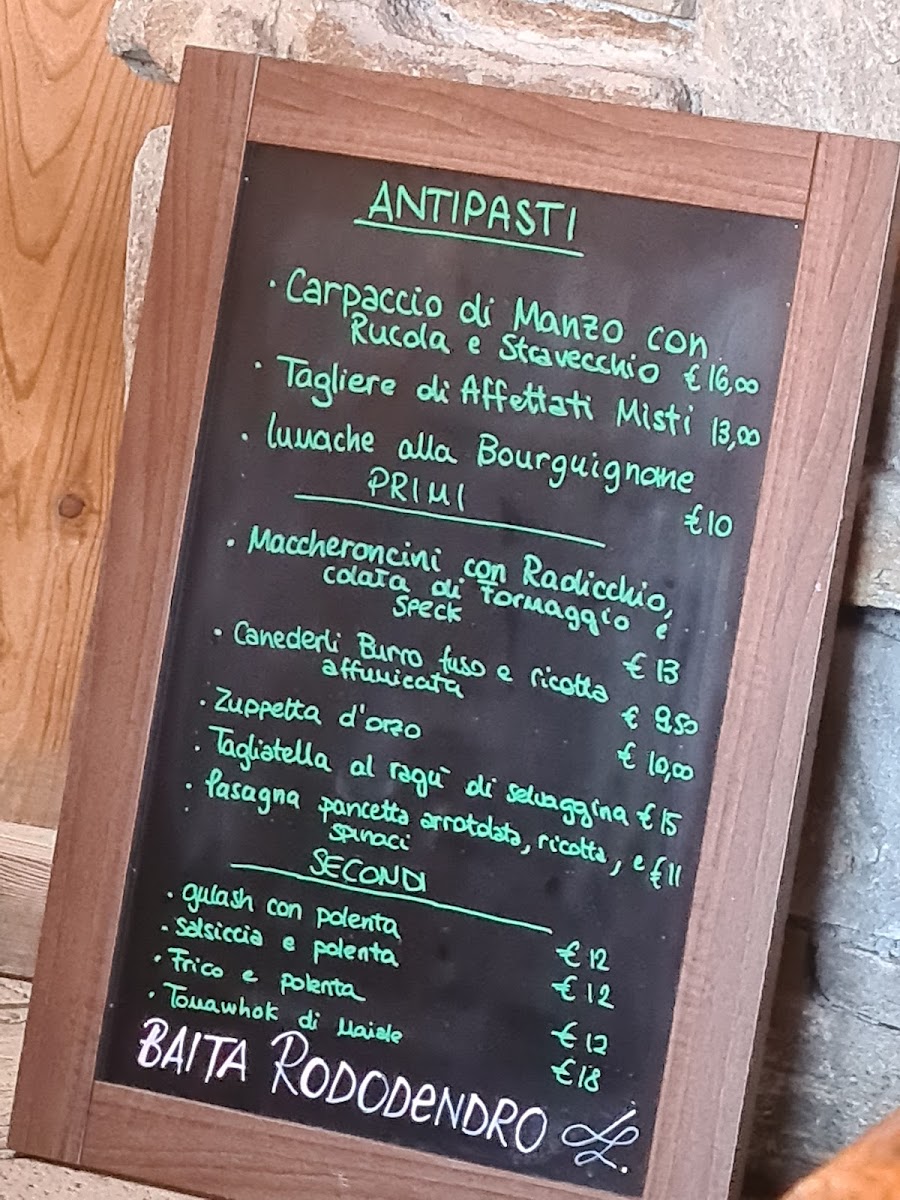 ANTIPASTI
· Carpaccio di Manzo con
Rucola e Stravecchio € 16,00
· Tagliere di Affettati Misti 13,00
· lumache alla Bourguignonne
€ 10
PRIMI
· Maccheroncini con Radicchio,
colata di Formaggio e
Speck € 13
· Canederli Burro fuso e ricotta
affumicata € 9,50
· Zuppetta d'orzo € 10,00
· Tagliatella al ragù di selvaggina € 15
· Pasagna pancetta arrotolata, ricotta, e € 11
spinaci
SECONDI
· gulash con polenta € 12
· Salsiccia e polenta € 12
· Frico e polenta € 12
· Tomawhok di Maiale € 18
BAITA RODODENDRO